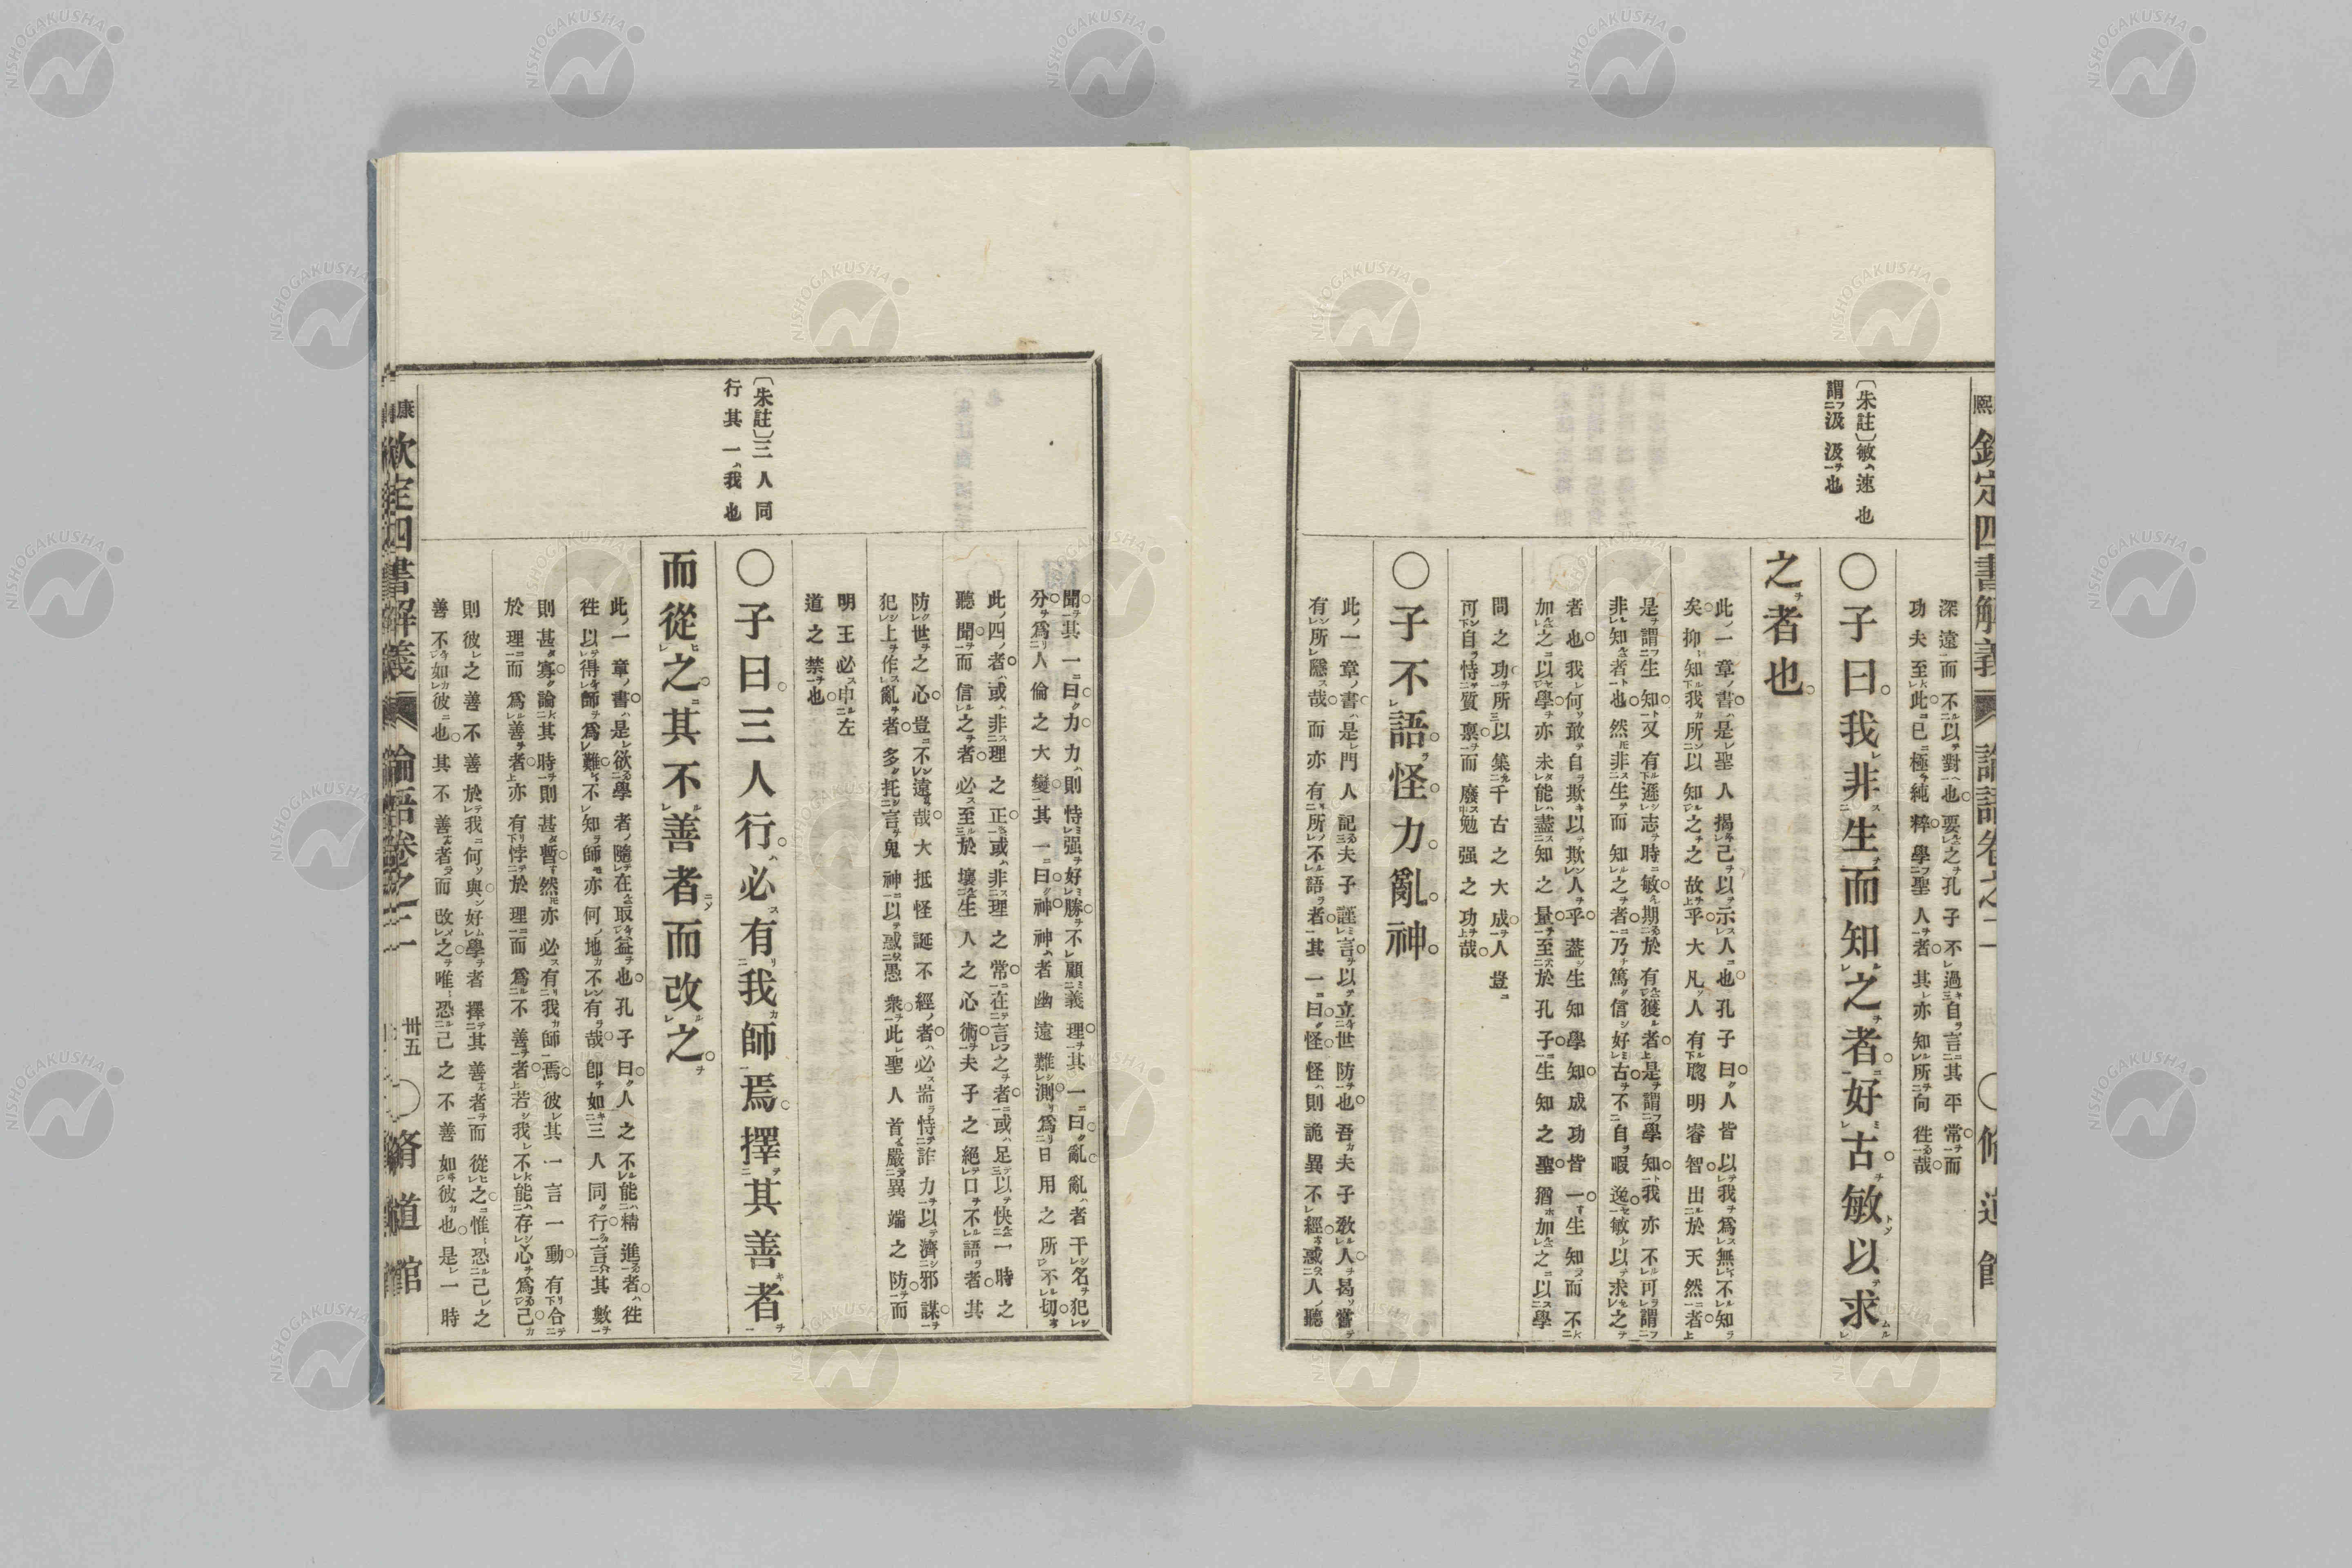 〔朱註〕敏速也
謂汲汲也
深遠而不以對也要之孔子不過自言其平常而
功夫至此已極純粹學聖人者其亦知所向徃哉
〇子曰我非生而知之者好古敏以求
之者也
此一章書是聖人揭己以示人也孔子曰人皆以我爲無不知
矣抑知我所以知之之故乎大凡人有聰明睿智出於天然者
是謂生知又有遜志時敏期於有獲者是謂學知我亦不可謂
非知者也然非生而知之者乃篤信好古不自暇逸敏以求之
者也我何敢自欺以欺人乎葢生知學知成功皆一生知而不
加之以學亦未能盡知之量至於孔子生知之聖猶加之以學
問之功所以集千古之大成人豈
可自恃質禀而廢勉强之功哉
〇子不語怪力亂神
此一章書是門人記夫子謹言以立世防也吾夫子敎人曷嘗
有所隱哉而亦有所不語者其一曰怪怪則詭異不經惑人聽
聞其一曰力力則恃强好勝不顧義理其一曰亂亂者干名犯
分爲人倫之大變其一曰神神者幽遠難測爲日用之所不切
此四者或非理之正或非理之常在言之者或足以快一時之
聽聞而信之者必至於壞生人之心術夫子之絕口不語者其
防世之心豈不遠哉大抵怪誕不經者必耑恃詐力以濟邪謀
犯上作亂者多托言鬼神以惑愚衆此聖人首嚴異端之防而
明王必申左
道之禁也
〔朱註〕三人同
行其一我也
〇子曰三人行必有我師焉擇其善者
而從之其不善者而改之
此一章書是欲學者隨在取益也孔子曰人之不能精進者徃
徃以得師爲難不知師亦何地不有哉卽如三人同行言其數
則甚寡論其時則甚暫然亦必有我師焉彼其一言一動有合
於理而爲善者亦有悖於理而爲不善者若我不能存心爲己
則彼之善不善於我何與好學者擇其善者而從之惟恐己之
善不如彼也其不善者而改之唯恐己之不善如彼也是一時
欽定四書解義 論語卷之二 卅五 〇脩道館